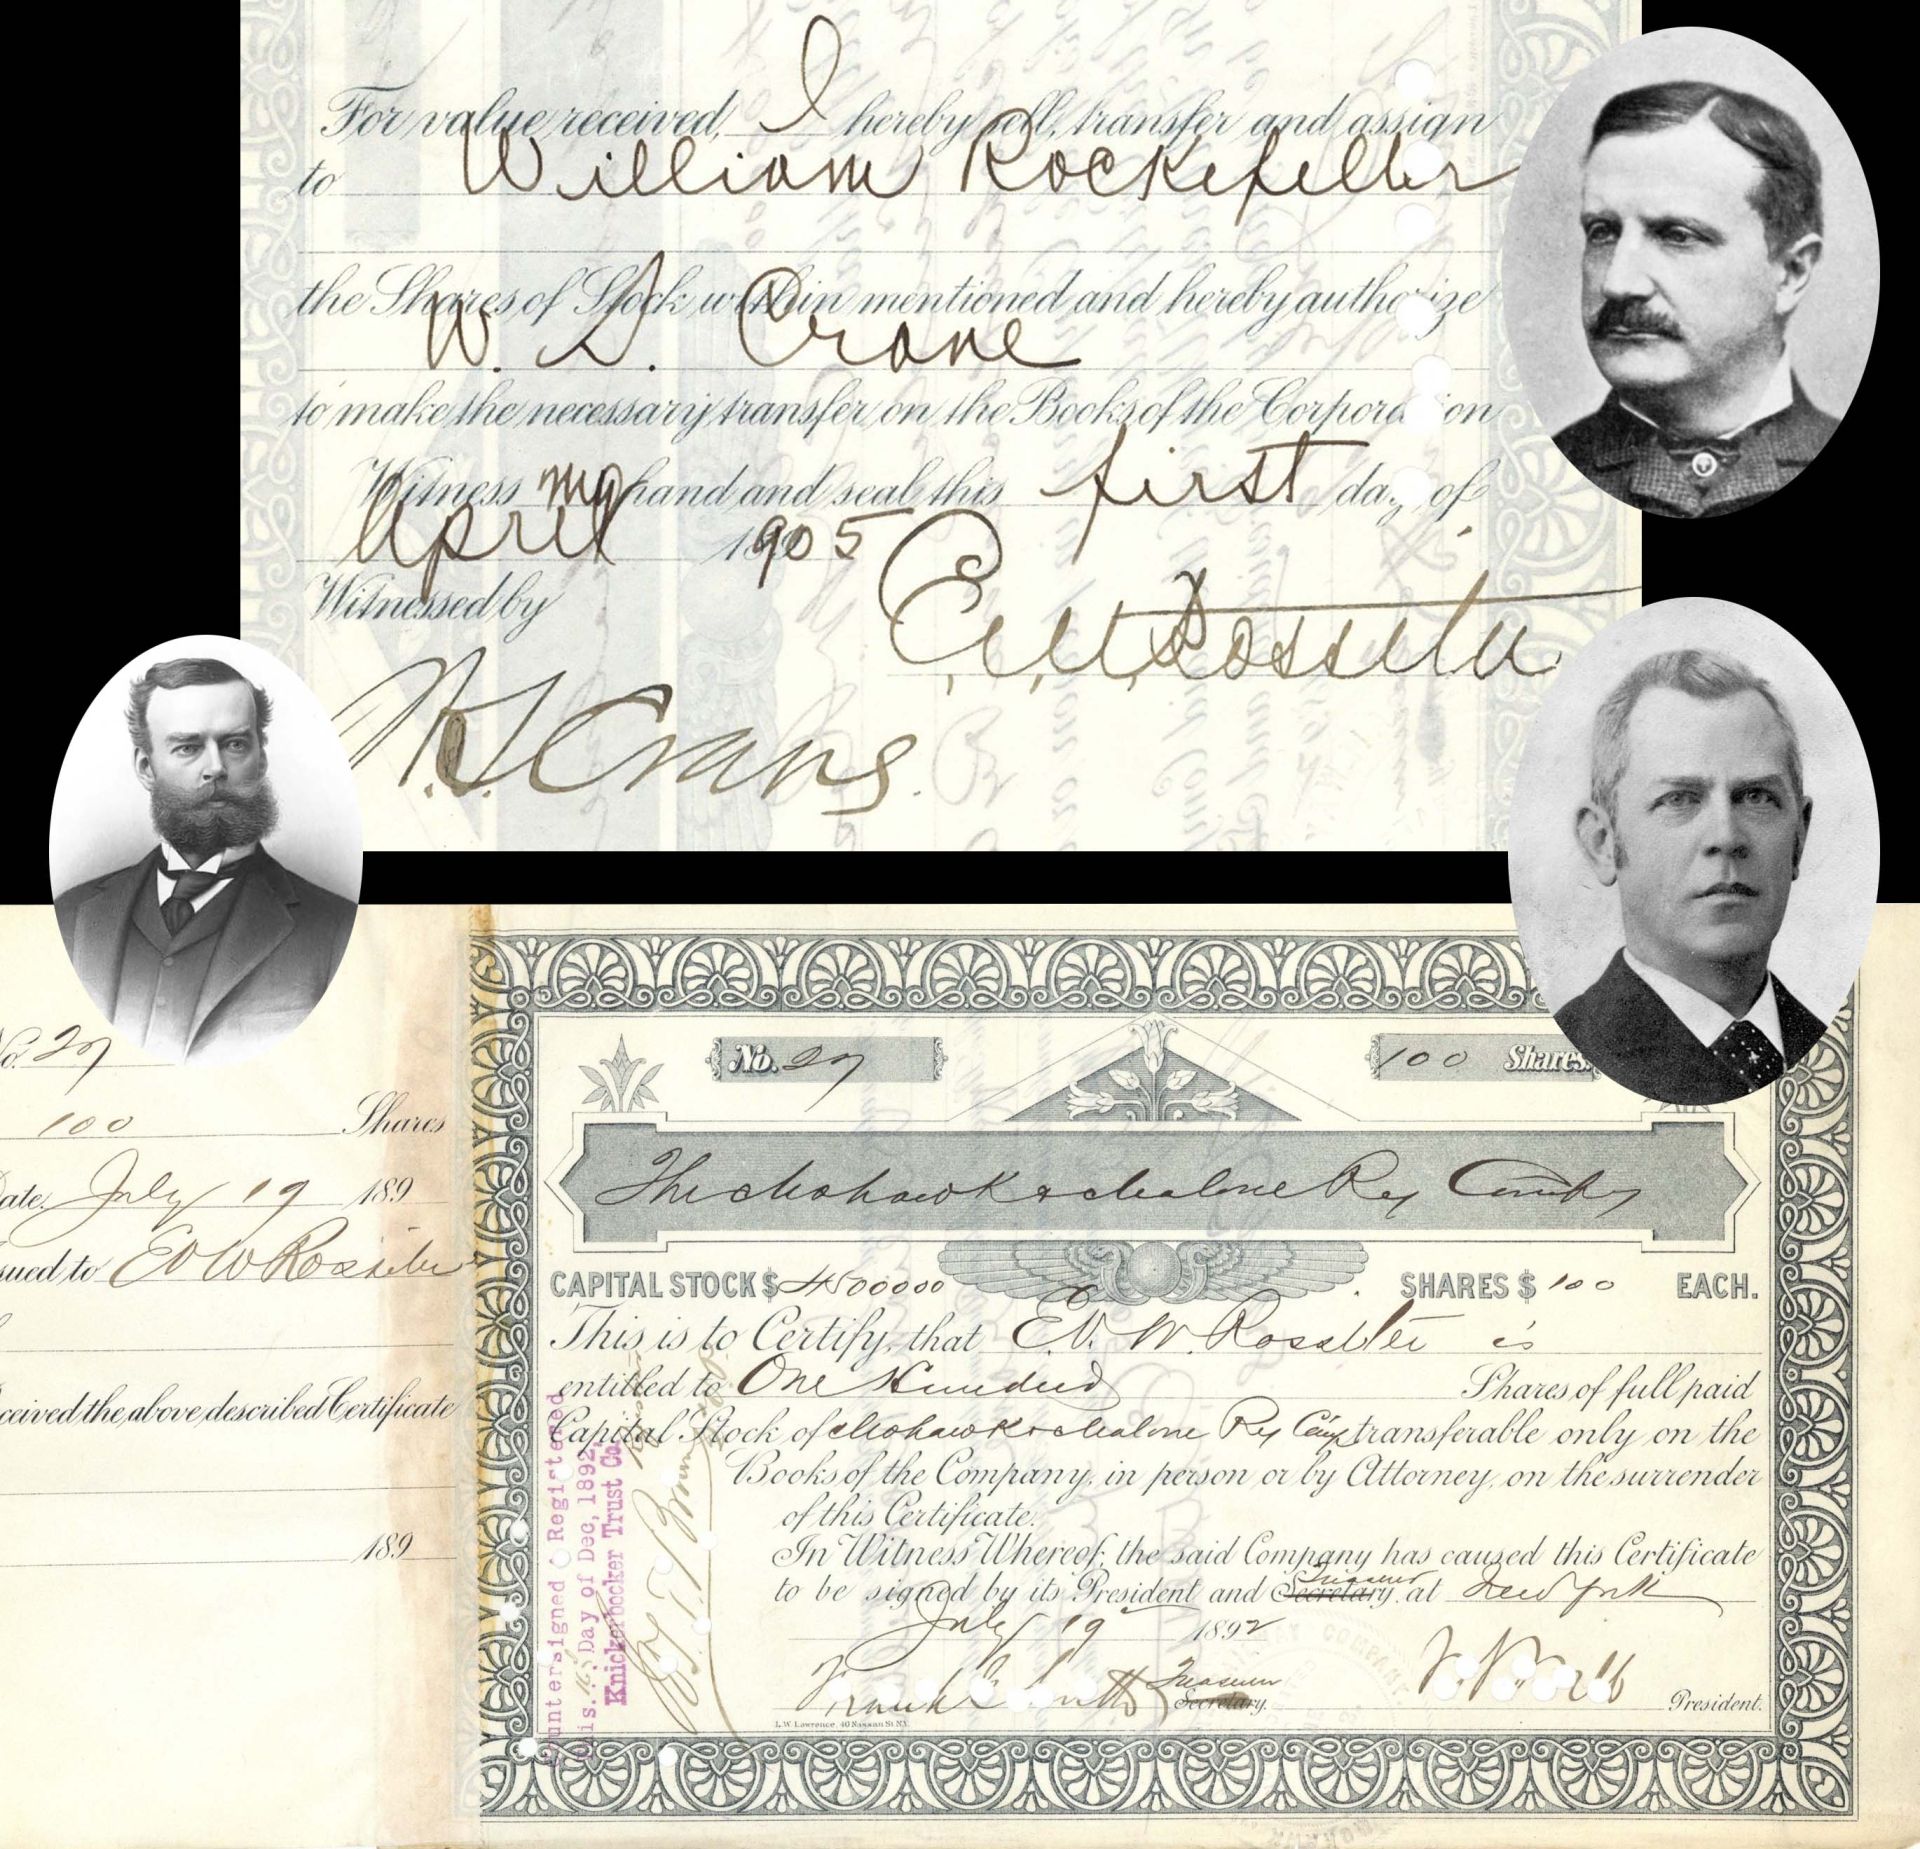 For value received, I hereby sell, transfer and assign
to William Rockefeller
the Shares of Stock within mentioned and hereby authorize
W. S. Crane
to make the necessary transfer on the Books of the Corporation
Witness my hand and seal this first day of
April 1905
Witnessed by
E. V. W. Rossiter
W. S. Crane
No. 27
100 Shares
Date July 19 189
Issued to E V W Rossiter
Received the above described Certificate
189
No. 27
100 Shares.
The Mohawk & Malone Ry Company
CAPITAL STOCK $ 4500000 SHARES $ 100 EACH.
This is to Certify, that E. V. W. Rossiter is
entitled to One Hundred Shares of full paid
Capital Stock of Mohawk & Malone Ry Comp transferable only on the
Books of the Company, in person or by Attorney, on the surrender
of this Certificate.
In Witness Whereof, the said Company has caused this Certificate
to be signed by its President and Secretary Treasurer at New York
July 19 1892
Treasurer
Secretary.
President.
L.W. Lawrence, 40 Nassau St N.Y.
Countersigned & Registered
this 16 Day of Dec, 1892,
Knickerbocker Trust Co.